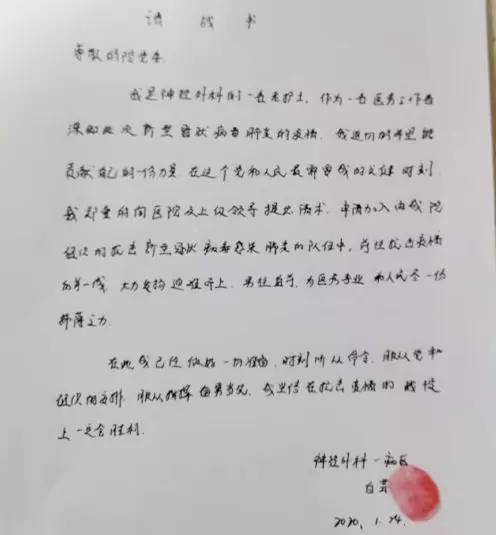 请 战 书
尊敬的院党委:
我是神经外科的一名老护士,作为一名医务工作者
深知此次新型冠状病毒肺炎的疫情,我迫切的希望能
贡献自己的一份力量 在这个党和人民最需要我的关键时刻,
我郑重的向医院及上级领导提出请求,申请加入由我院
组织的抗击新型冠状病毒感染肺炎的队伍中,前往抗击疫情
的第一线 大力发扬迎难而上,勇往直前,为医务事业 和人民尽一份
绵薄之力.
在此我已经做好一切准备,时刻听从命令,服从党和
组织的安排 服从指挥 我坚信在抗击疫情的战役
上一定会胜利.
神经外科一病区
2020、1.24.